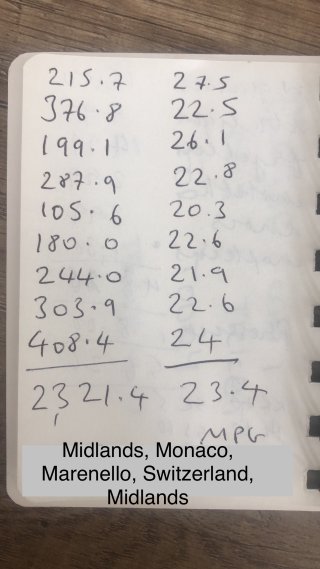 215.7 27.5
376.8 22.5
199.1 26.1
287.9 22.8
105.6 20.3
180.0 22.6
244.0 21.9
303.9 22.6
408.4 24
2321.4 23.4
MPG
Midlands, Monaco,
Marenello, Switzerland,
Midlands